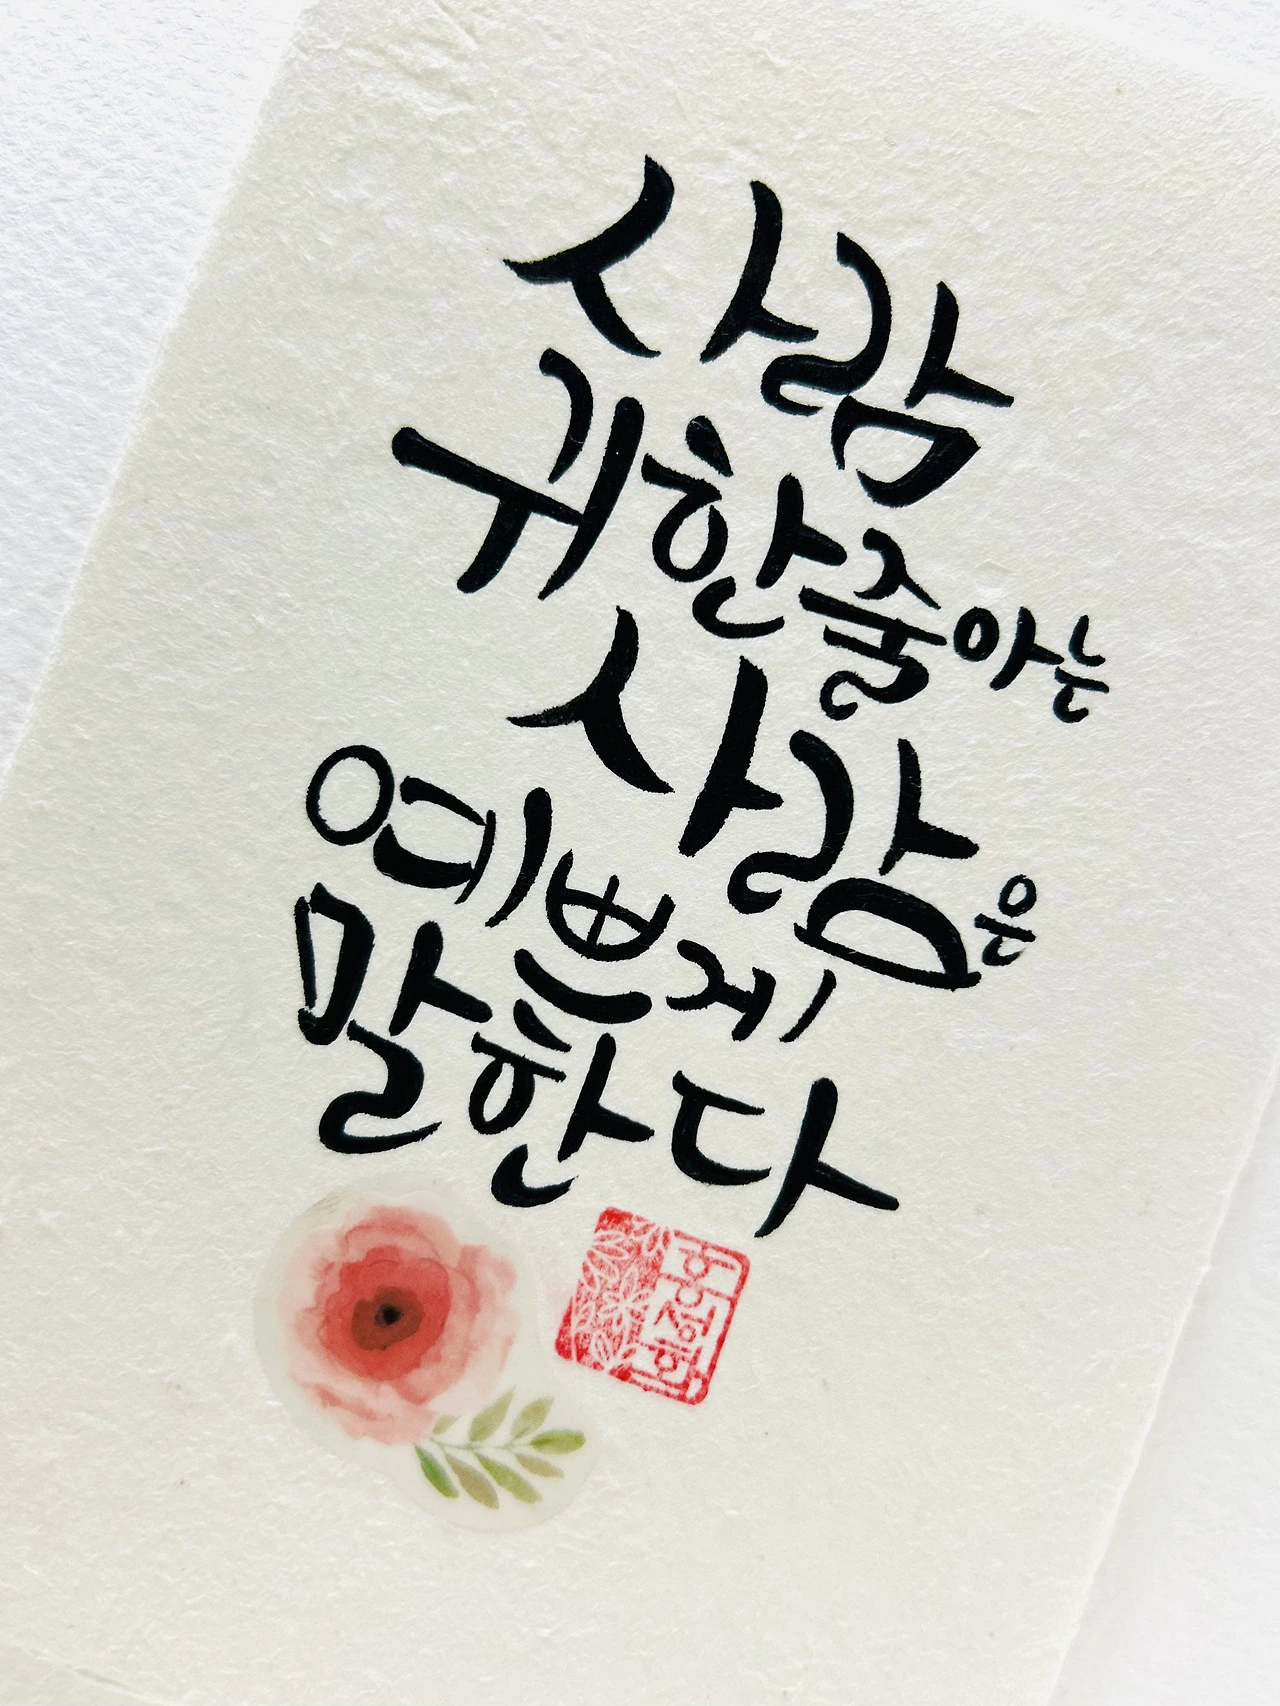 사람
귀한줄아는
사람은
예쁘게
말한다